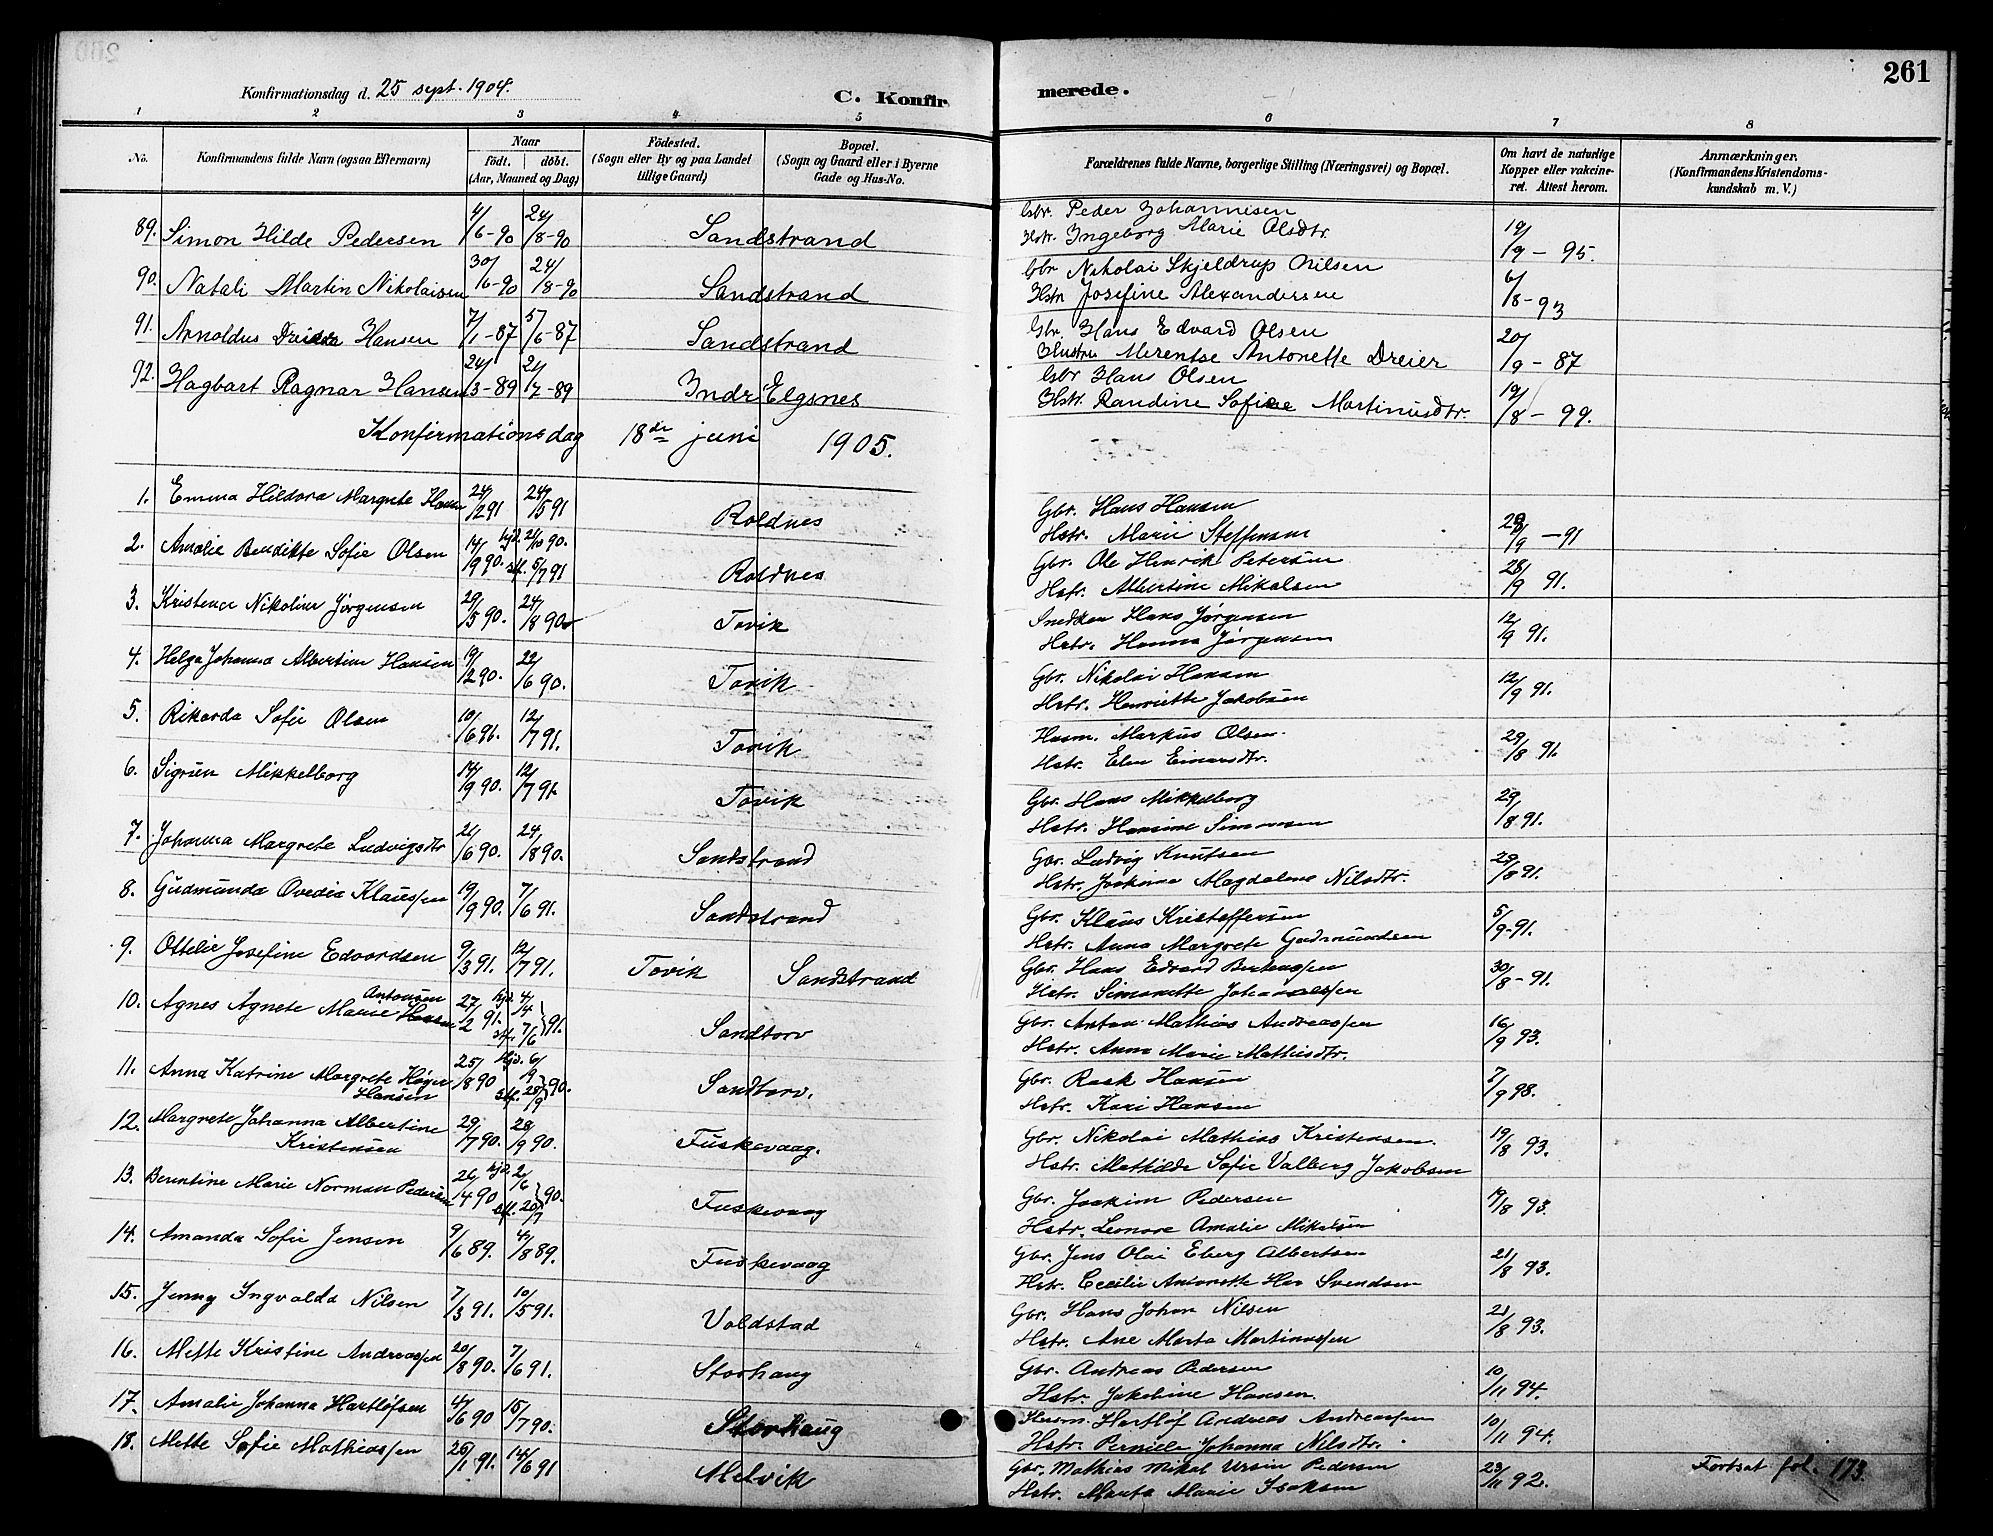 261
Konfirmationsdag d. 25 sept. 1904.
C. Konfirmerede.
1 2 3 4 5 6 7 8
No.
Konfirmandens fulde Navn (ogsaa Efternavn)
Naar
födt. döbt.
(Aar, Maaned og Dag)
Födested.
(Sogn eller By og paa Landet
tillige Gaard)
Bopæl.
(Sogn og Gaard eller i Byerne
Gade og Hus-No.
Forældrenes fulde Navne, borgerlige Stilling (Næringsvei) og Bopæl.
Om havt de naturlige
Kopper eller vakcine-
ret. Attest herom.
Anmærkninger.
(Konfirmandens Kristendoms-
kundskab m. V.)
89. Simon Hilde Pedersen 4/6-90 24/8-90 Sandstrand Gbr. Peder Johannesen 19/9-95.
Hstr. Ingeborg Marie Olsdtr.
90. Natali Martin Nikolaisen 30/6-90 24/8-90 Sandstrand Gbr Nikolai Skjeldrup Nilsen 6/8-93
Hstr Josefine Alexandersen
91. Arnoldus Hansen 7/1-87 5/6-87 Sandstrand Gbr Hans Edvard Olsen 20/9-87
Hustru Merentse Antonette Dreier
92. Hagbart Ragnar Hansen 24/3-89 21/7-89 Indr Elgsnes Gbr Hans Olsen 19/8-99.
Hstr. Randine Sofie Martinusdtr.
Konfirmationsdag 18de juni 1905.
1. Emma Hildora Margrete Hansen 24/2 91 24/5 91 Roldnes Gbr. Hans Hansen /9-91
Hstr. Marie Steffensen
2. Amalie Bendikte Sofie Olsen 14/9 90. hjd. 21/10 90. stf. 5/7 91 Roldnes Gbr. Ole Henrik Petersen 28/9 91.
Hstr. Albertine Mikalsen
3. Kristence Nikoline Jørgensen 29/5 90. 24/8 90 Tovik Snedker Hans Jørgensen 12/9 91.
Hstr. Hanna Jørgensen
4. Helga Johanna Albertine Hansen 19/2 90. 22/6 90. Tovik Gbr. Nikolai Hansen 12/9 91.
Hstr. Henriette Jakobsen
5. Rikarda Sofie Olsen 10/6 91. 12/7 91. Tovik Husm. Markus Olsen. 29/8 91.
Hstr. Elen Einarsdtr.
6. Sigrun Mikkelborg 14/9 90. 12/7 91. Tovik Gbr. Hans Mikkelborg 29/8 91.
Hstr. Hansine Simonsen
7. Johanna Margrete Ludvigsdtr 21/6 90. 24/8 90. Sandstrand Gbr. Ludvig Knutsen 29/8 91.
Hstr. Joakima Magdalena Nilsdtr.
8. Gudmunda Ovedia Klaussen 19/9 90. 7/6 91. Sandstrand Gbr. Klaus Kristoffersen 5/9-91.
Hstr. Anna Margrete Gudmundsen
9. Ottelie Josefine Edvardsen 9/3 91. 12/7 91. Tovik Sandstrand Gbr. Hans Edvard Berteussen 30/8-91.
Hstr. Simonette Johannessen
10. Agnes Agnete Marie Antonsen 27/2 91. hjd. 4/4 stf. 7/6 91. Sandtorv Gbr. Anton Mathias Andreassen 16/9 93.
Hstr. Anna Marie Mathisdtr.
11. Anna Katrine Margrete Høyer 25/8 90 Hjd. 6/9 stf. 28/9 90. Sandtorv. Gbr. Rask Hansen 7/9 98.
Hansen Hstr. Kari Hansen
12. Margrete Johanna Albertine 29/7 90. 28/9 90. Fuskevaag. Gbr. Nikolai Mathias Kristensen. 19/8 93.
Kristensen Hstr. Mathilde Sofie Valberg Jakobsen
13. Berntine Marie Norman Pedersen 26/4 90 hjd. 2/6 stf. 20/7 90. Fuskevaag Gbr. Joakim Pedersen 19/8 93.
Hstr. Leonore Amalie Mikalsen
14. Amanda Sofie Jensen 9/6 89. 4/8 89. Fuskevaag Gbr. Jens Olai Eberg Albertsen 21/8 93.
Hstr. Cecilie Antonette Svendsen
15. Jenny Ingvalda Nilsen 7/3 91. 10/5 91. Voldstad Gbr. Hans Johan Nilsen 21/8 93.
Hstr. Ane Marta Martinussen
16. Mette Kristine Andreassen 20/8 90. 7/6 91. Storhaug Gbr. Andreas Pedersen 10/11 94.
Hstr. Jakobine Hansen.
17. Amalie Johanna Hartløfsen 4/6 90 15/7 90. Storhaug Husm. Hartløf Andreas Andreassen 10/11 94.
Hstr. Pernille Johanna Nilsdtr.
18. Mette Sofie Mathiassen 26/1 91. 14/6 91 Melvik Gbr. Mathias Mikal Ursin Pedersen 23/11 92.
Hstr. Marta Marie Isaksen
Fortsat fol. 173.